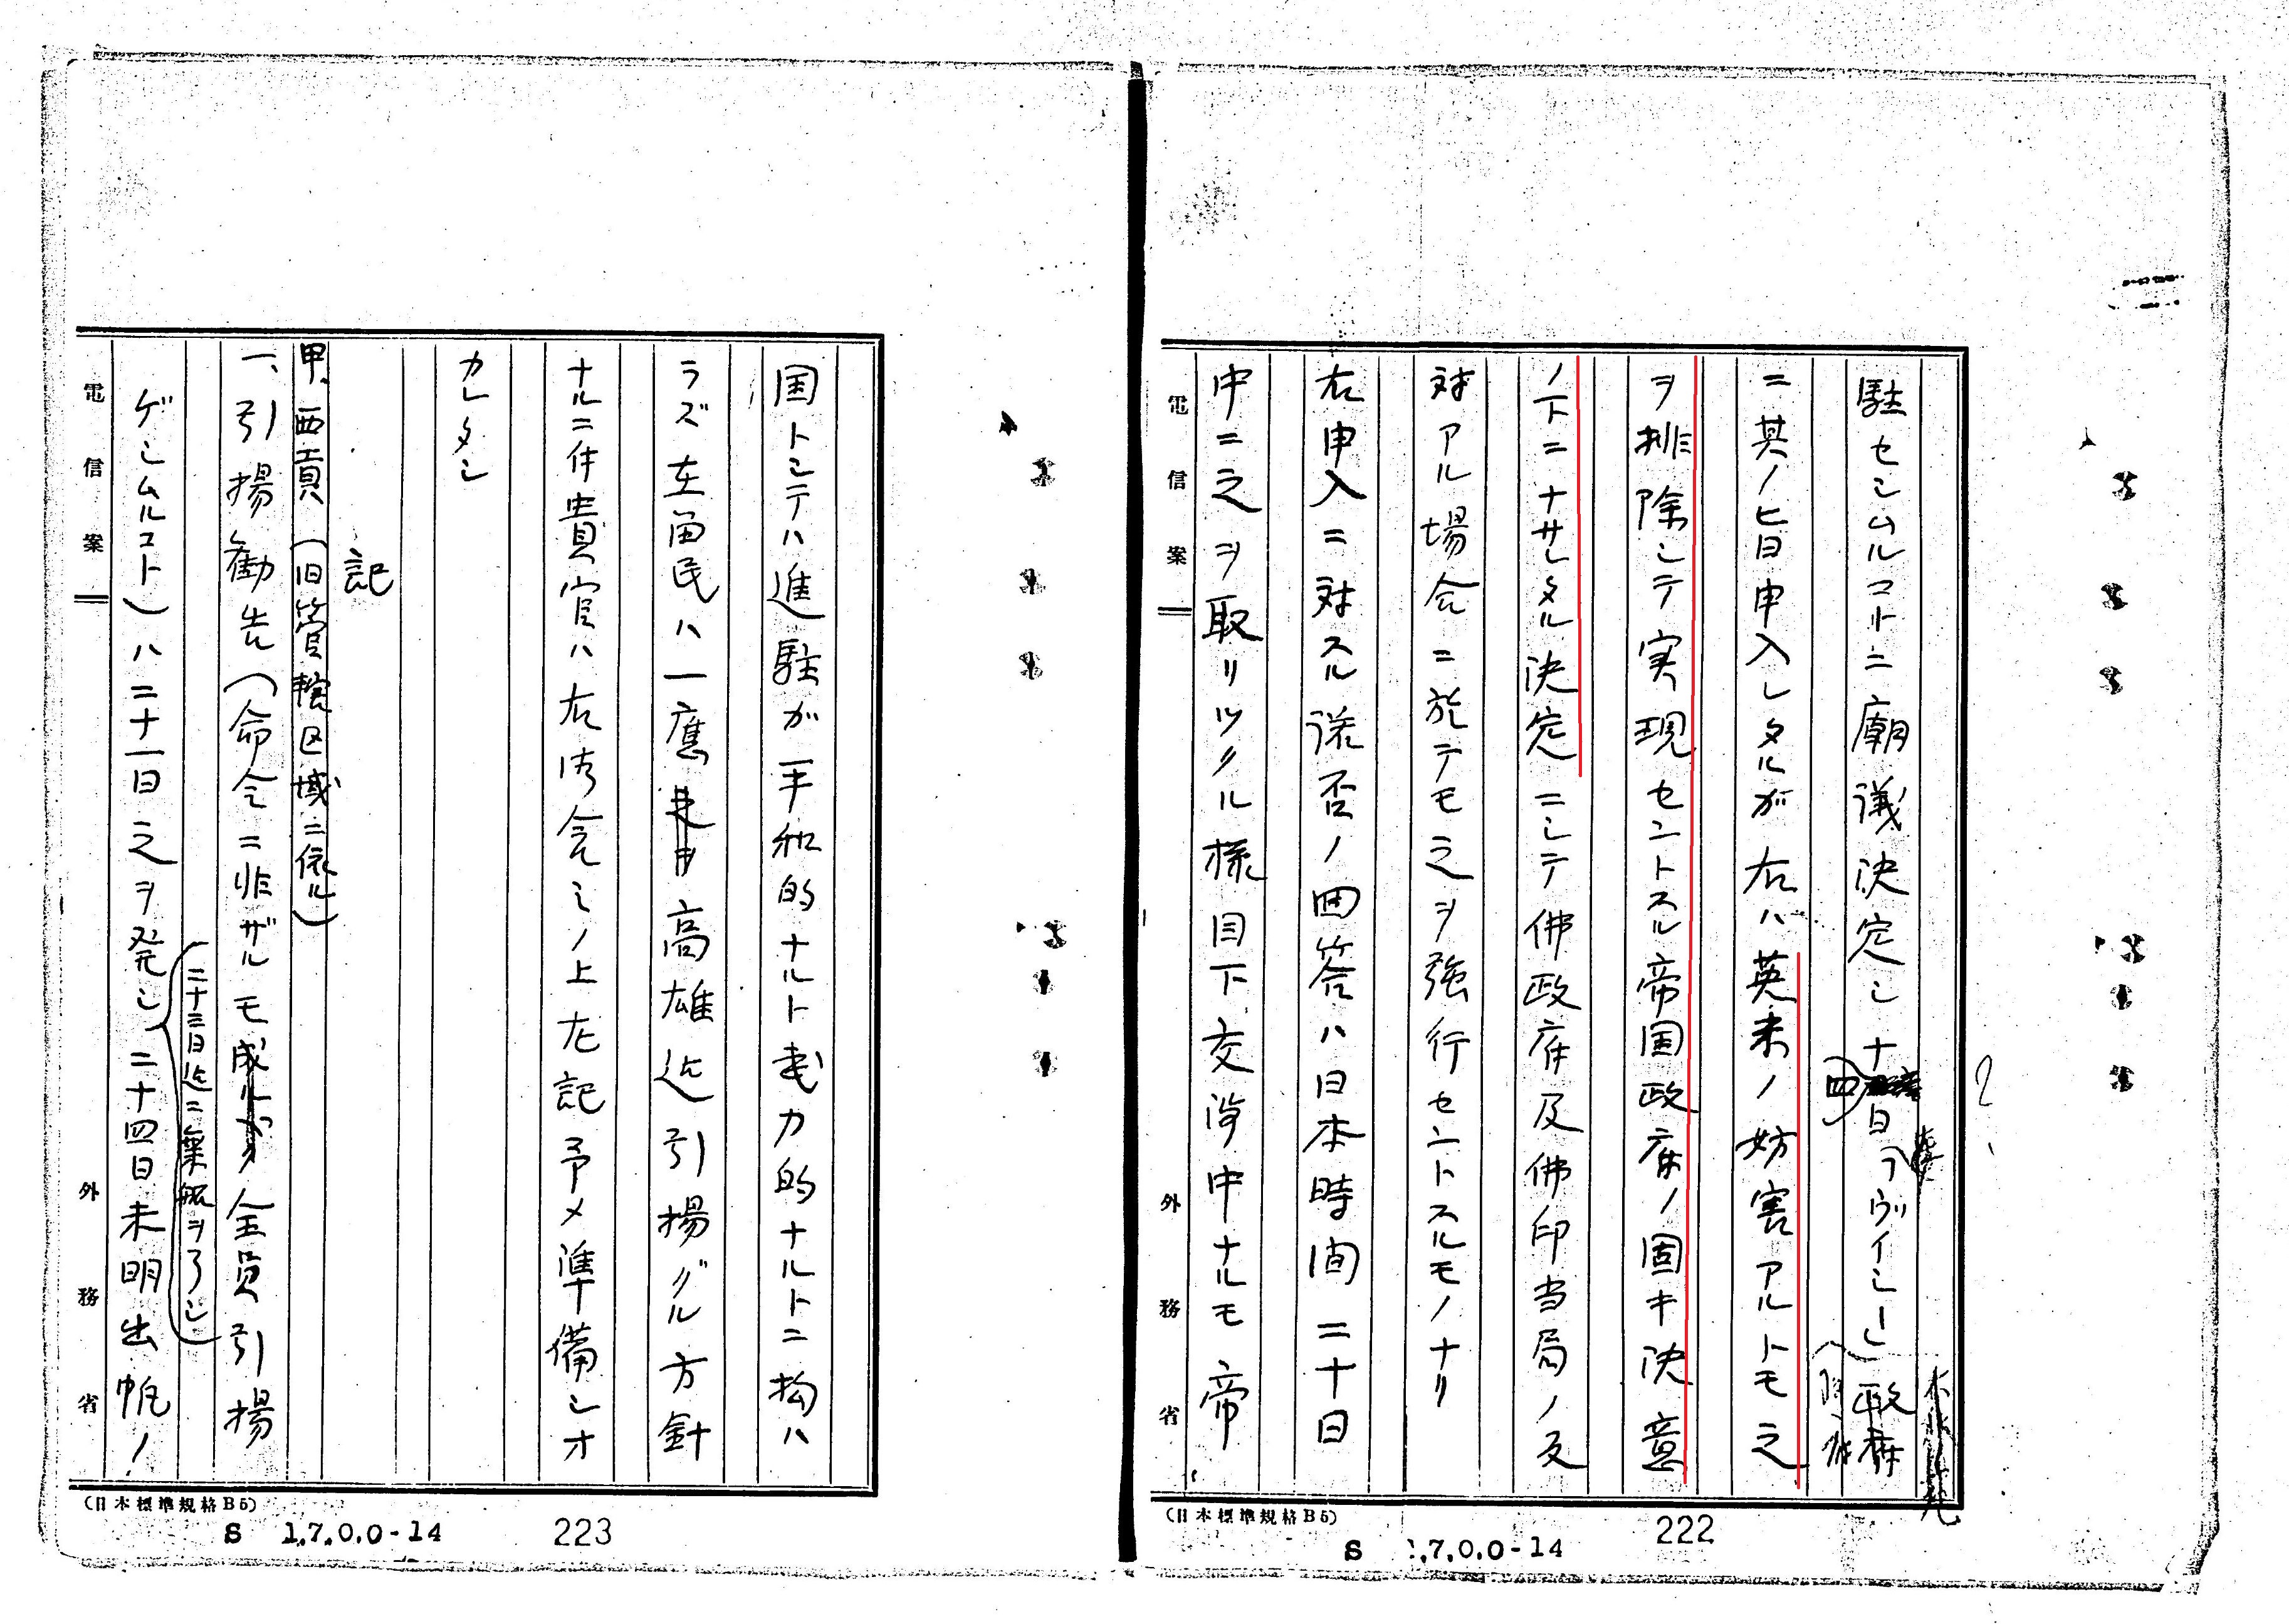 駐セシムルコトニ廟議決定シ十四日「ヴィシー」政府
ニ其ノ旨申入レタルガ右ハ英米ノ妨害アルトモ之
ヲ排除シテ実現セントスル帝国政府ノ固キ決意
ノ下ニナサレタル決定ニシテ佛政府及佛印当局ノ反
対アル場合ニ於テモ之ヲ強行セントスルモノナリ
右申入ニ対スル諾否ノ回答ハ日本時間二十日
中ニ之ヲ取リツクル様目下交渉中ナルモ帝
電信案
外務省
(日本標準規格B5)
S 1.7.0.0-14
222
国トシテハ進駐が平和的ナルト武力的ナルトニ拘ハ
ラズ在留民ハ一應高雄迄引揚グル方針
ナルニ付貴官ハ右御含ミノ上左記予メ準備シオ
カレタシ
記
甲、西貢(旧管轄区域ニ依ル)
一、引揚勧告(命令ニ非ザルモ成ルベク全員引揚
二十三日迄ニ乗船ヲ了シ
ゲシムルコト)ハ二十一日之ヲ発シ二十四日未明出帆ノ
電信案
外務省
(日本標準規格B5)
S 1.7.0.0-14
223